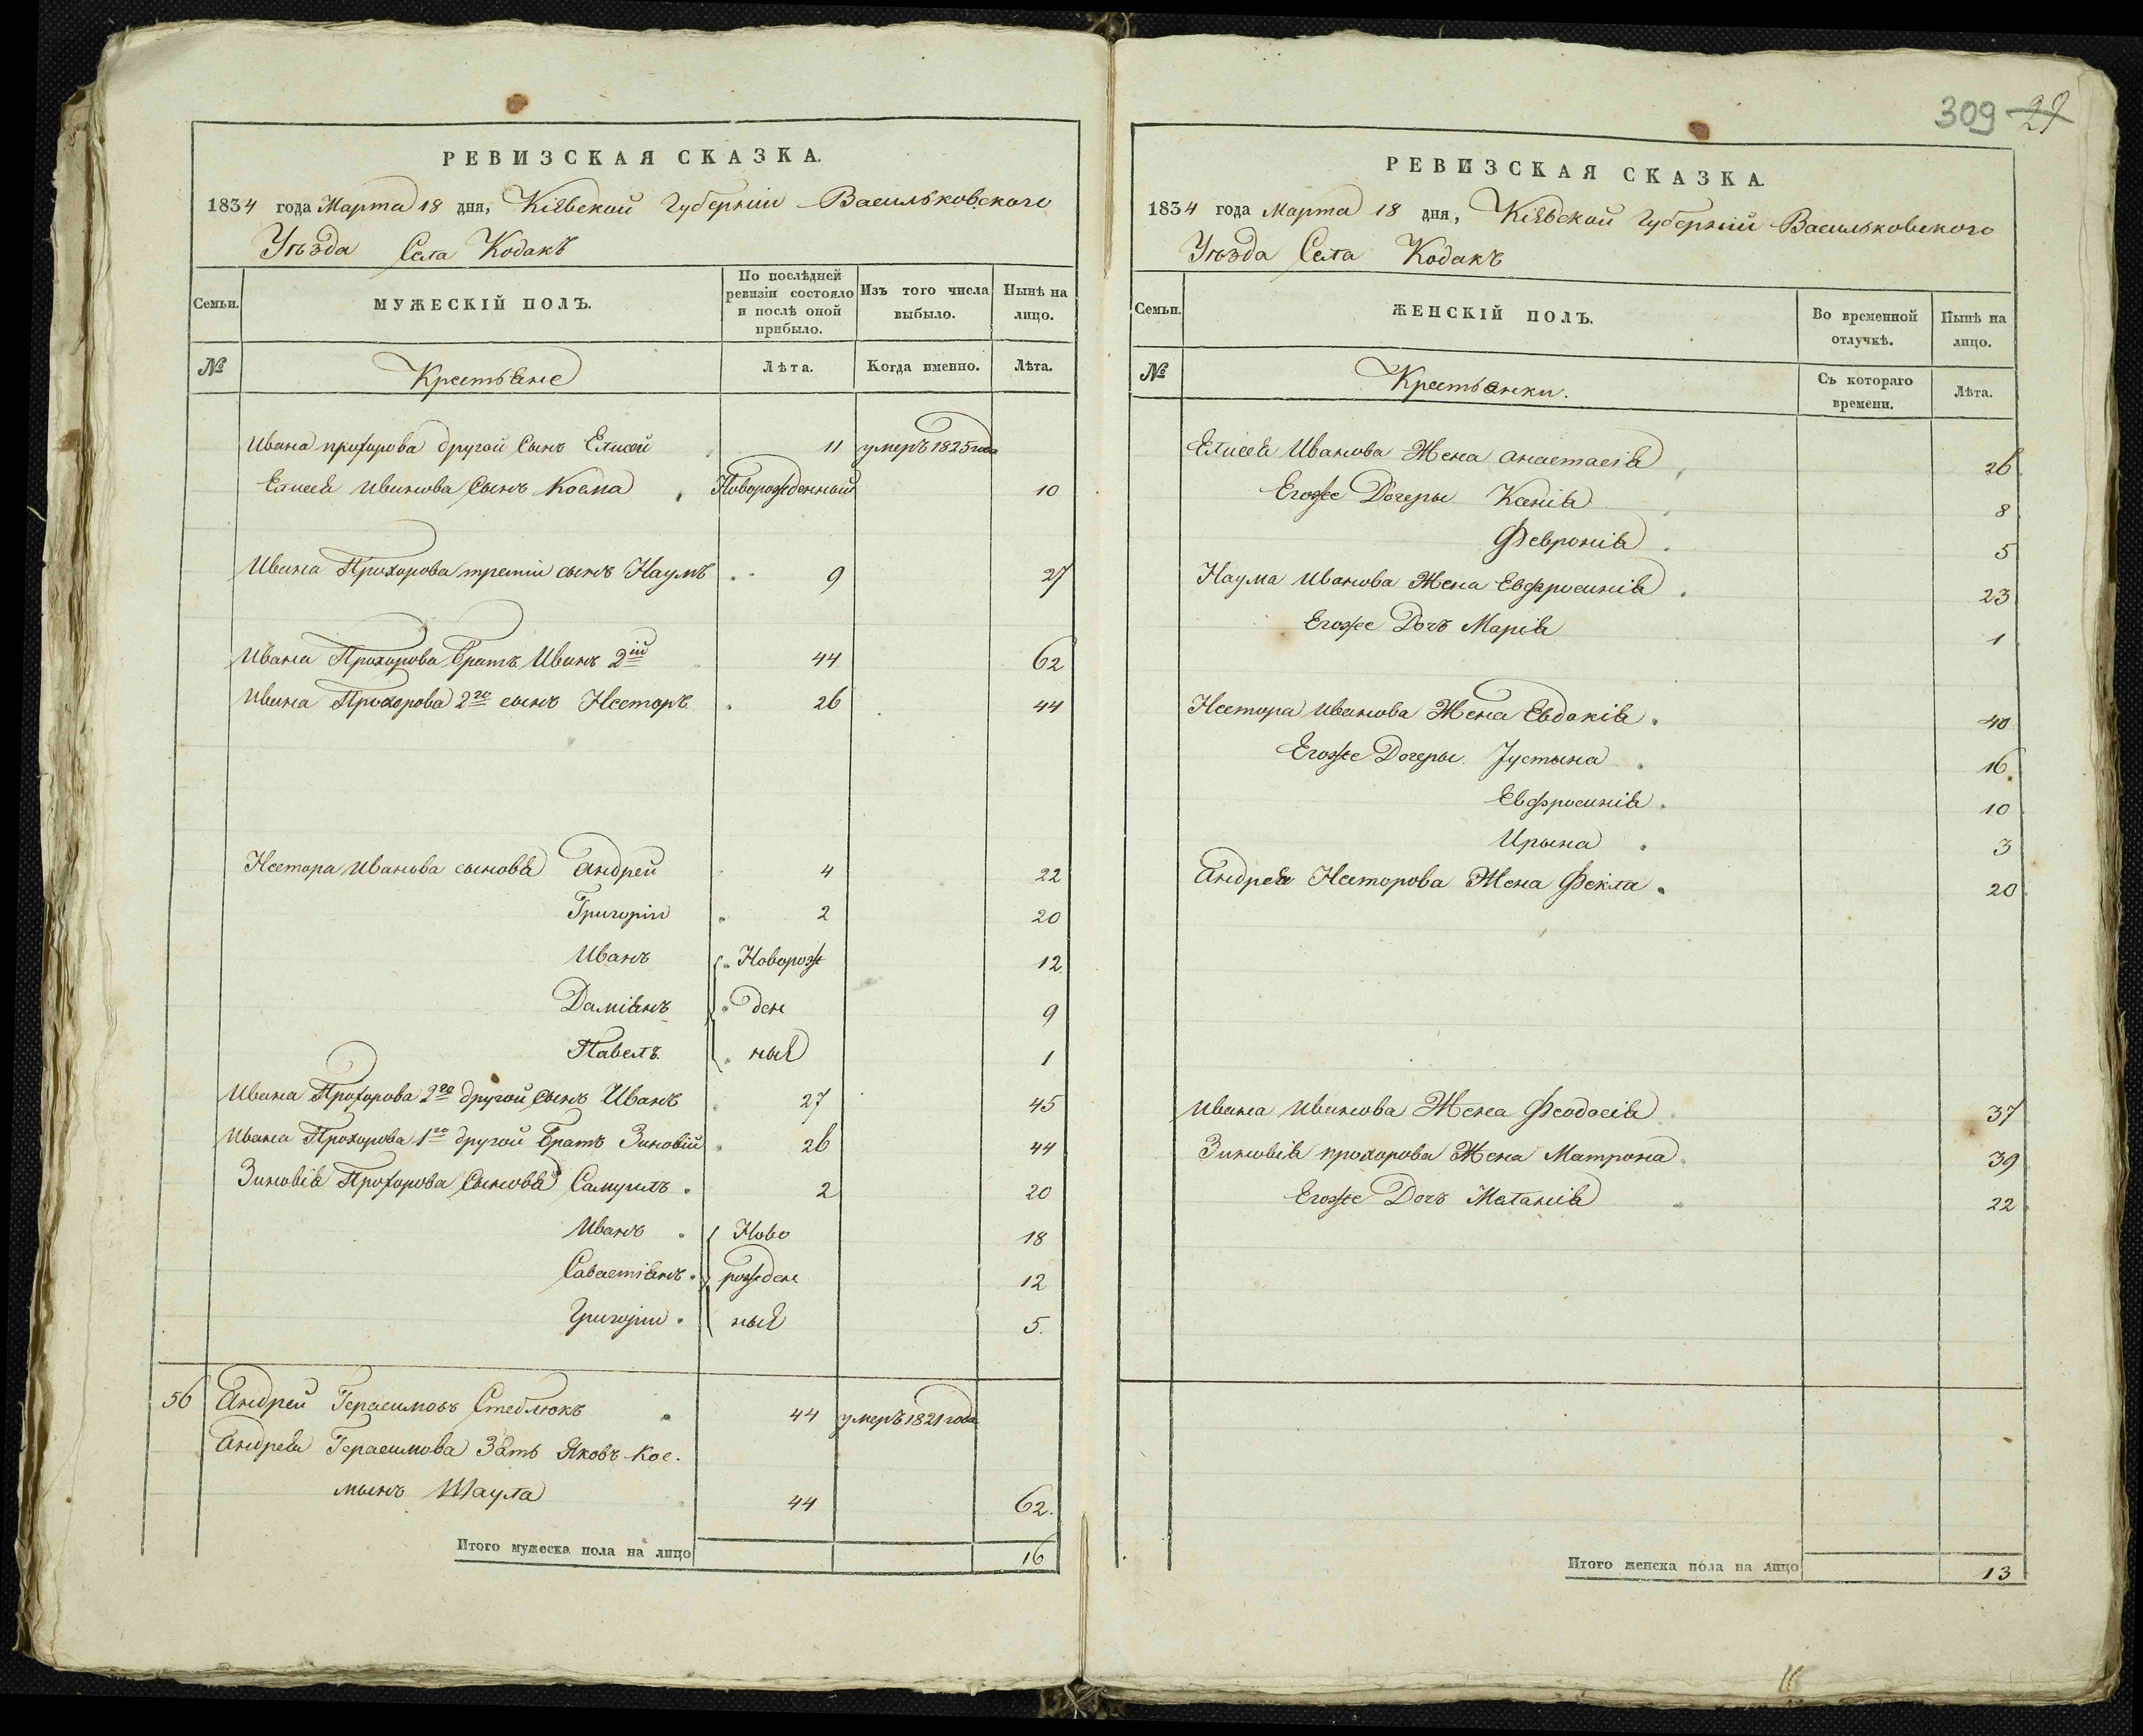 РЕВИЗСКАЯ СКАЗКА.
1834 года Марта 18 дня, Кіевской Губерніи Васильковского
Уѣзда Села Кодакъ
Семьи.
МУЖЕСКІЙ ПОЛЪ.
По послѣдней ревизіи состояло и послѣ оной прибыло.
Изъ того числа выбыло.
Нынѣ на лицо.
№
Крестьяне
Лѣта.
Когда именно.
Лѣта.
Ивана прохорова другой Сынъ Елисей 11 умеръ 1825 года
Елисея Иванова Сынъ Косма Новорожденный 10
Ивана Прохорова третіи сынъ Наумъ 9 27
Ивана Прохорова Братъ Иванъ 2ій 44 62
Ивана Прохорова 2го сынъ Несторъ 26 44
Нестора Иванова сыновя Андрей 4 22
Григоріи 2 20
Иванъ Новорож 12
Даміянъ ден 9
Павелъ ныя 1
Ивана Прохорова 2го другой сынъ Иванъ 27 45
Ивана Прохорова 1го другой Братъ Зиновій 26 44
Зиновія Прохорова Сыновя Самуилъ 2 20
Иванъ Ново 18
Савастіянъ рожден 12
Григоріи ныя 5.
56 Андрей Герасимовъ Стеблюкъ 44 умеръ 1821 года
Андрея Герасимова Зять Яковъ Кос-
минъ Шаула 44 62.
Итого мужеска пола на лицо 16
309 29
РЕВИЗСКАЯ СКАЗКА.
1834 года Марта 18 дня, Кіевской Губерніи Васильковского
Уѣзда Села Кодакъ
Семьи.
ЖЕНСКІЙ ПОЛЪ.
Во временной отлучкѣ.
Нынѣ на лицо.
№
Крестьянки.
Съ котораго времени.
Лѣта.
Елисея Иванова Жена анастасія 26
Егоже Дочеры Ксенія 8
Февронія 5
Наума Иванова Жена Евфросинія 23
Егоже Дочь Марія 1
Нестора Иванова Жена Евдокія 40
Егоже Дочеры Јустына 16
Евфросинія 10
Ирына 3
Андрея Несторова Жена Фекла 20
Ивана Иванова Жена Феодосія 37
Зиновія прохорова Жена Матрона 39
Егоже Дочь Меланія 22
Итого женска пола на лицо 13